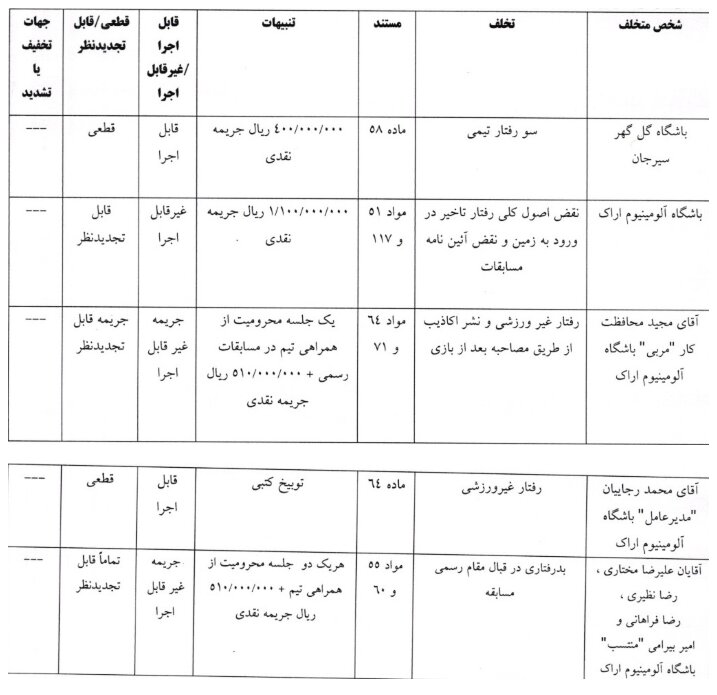 شخص متخلف
تخلف
مستند
تنبیهات
قابل
اجرا
/غیرقابل
اجرا
قطعی/قابل
تجدیدنظر
جهات
تخفیف
یا
تشدید
باشگاه گل گهر
سیرجان
سو رفتار تیمی
ماده ٥٨
٤٠٠/٠٠٠/٠٠٠ ریال جریمه
نقدی
قابل
اجرا
قطعی
---
باشگاه آلومینیوم اراک
نقض اصول کلی رفتار تاخیر در
ورود به زمین و نقض آئین نامه
مسابقات
مواد ٥١
و ١١٧
١/١٠٠/٠٠٠/٠٠٠ ریال جریمه
نقدی
غیرقابل
اجرا
قابل
تجدیدنظر
---
آقای مجید محافظت
کار "مربی" باشگاه
آلومینیوم اراک
رفتار غیر ورزشی و نشر اکاذیب
از طریق مصاحبه بعد از بازی
مواد ٦٤
و ٧١
یک جلسه محرومیت از
همراهی تیم در مسابقات
رسمی + ٥١٠/٠٠٠/٠٠٠ ریال
جریمه نقدی
جریمه
غیر قابل
اجرا
جریمه قابل
تجدیدنظر
---
آقای محمد رجاییان
"مدیرعامل" باشگاه
آلومینیوم اراک
رفتار غیرورزشی
ماده ٦٤
توبیخ کتبی
قابل
اجرا
قطعی
---
آقایان علیرضا مختاری ،
رضا نظیری ،
رضا فراهانی و
امیر بیرامی "منتسب"
باشگاه آلومینیوم اراک
بدرفتاری در قبال مقام رسمی
مسابقه
مواد ٥٥
و ٦٠
هریک دو جلسه محرومیت از
همراهی تیم + ٥١٠/٠٠٠/٠٠٠
ریال جریمه نقدی
جریمه
غیر قابل
اجرا
تماماً قابل
تجدیدنظر
---